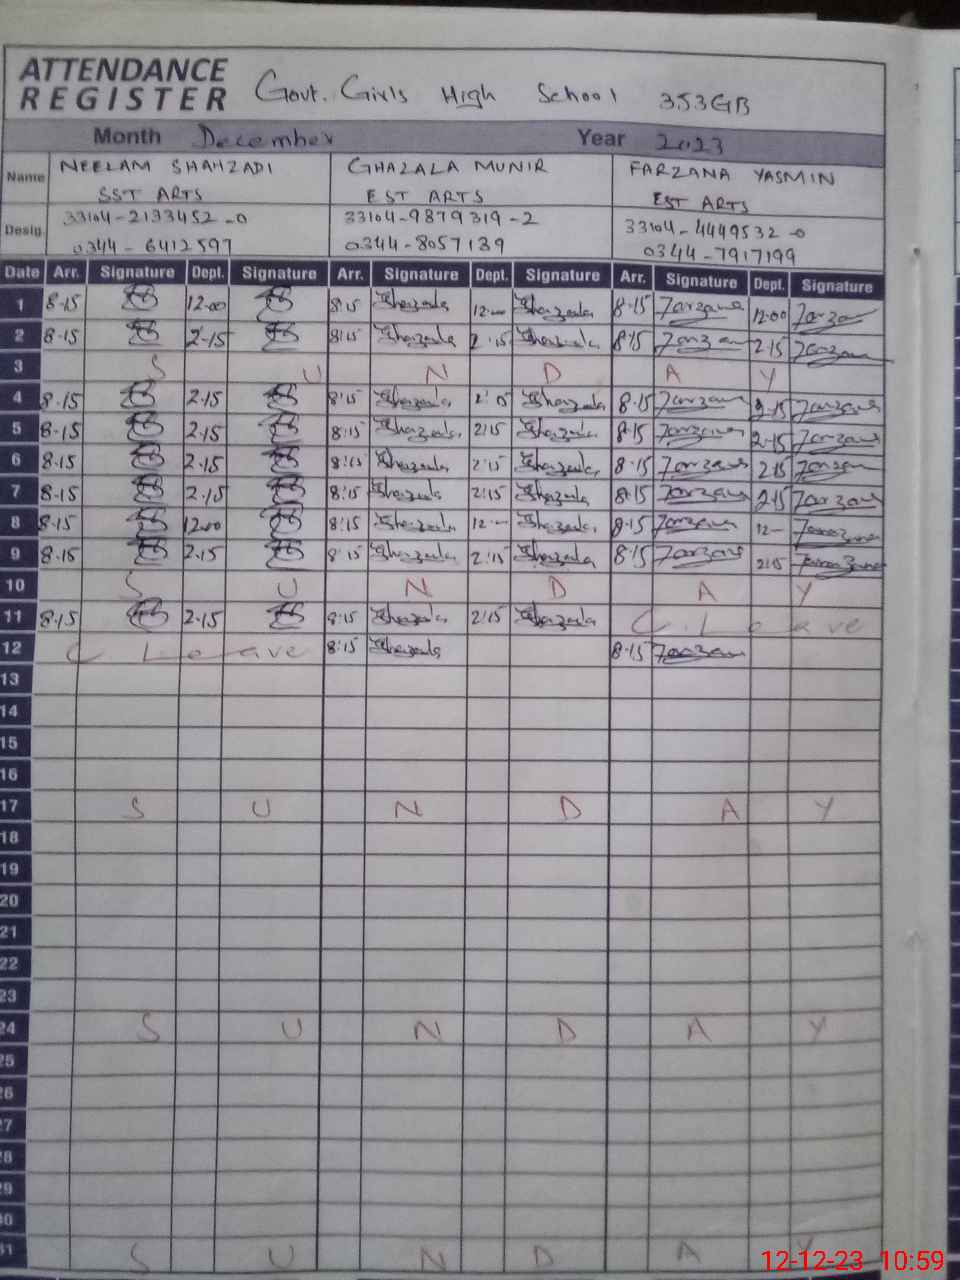 ATTENDANCE
REGISTER Govt. Girls High School 353GB
Month December Year 2023
Name NEELAM SHAHZADI GHAZALA MUNIR FARZANA YASMIN
SST ARTS EST ARTS EST ARTS
Desig. 33104-2133452-0 33104-9879319-2 33104-4449532-0
0344-6412597 0344-8057139 0344-7917199
Date Arr. Signature Dept. Signature Arr. Signature Dept. Signature Arr. Signature Dept. Signature
1 8.15 12.00 8:15 Ghazala 12:00 Ghazala 8-15 Farzana 12.00 Farzana
2 8.15 2.15 8:15 Ghazala 2:15 Ghazala 8:15 Farzana 2.15 Farzana
3 S U N D A Y
4 8.15 2.15 8:15 Ghazala 2:15 Ghazala 8.15 Farzana 2.15 Farzana
5 8.15 2.15 8:15 Ghazala 2:15 Ghazala 8.15 Farzana 2.15 Farzana
6 8.15 2.15 8:15 Ghazala 2:15 Ghazala 8.15 Farzana 2.15 Farzana
7 8.15 2.15 8:15 Ghazala 2:15 Ghazala 8.15 Farzana 2.15 Farzana
8 8.15 12.00 8:15 Ghazala 12- Ghazala 8.15 Farzana 12- Farzana
9 8.15 2.15 8:15 Ghazala 2:15 Ghazala 8.15 Farzana 2:15 Farzana
10 S U N D A Y
11 8.15 2.15 8:15 Ghazala 2:15 Ghazala C. Leave
12 C Leave 8:15 Ghazala 8.15 Farzana
13
14
15
16
17 S U N D A Y
18
19
20
21
22
23
24 S U N D A Y
25
26
27
28
29
30
31 S U N D A Y
12-12-23 10:59